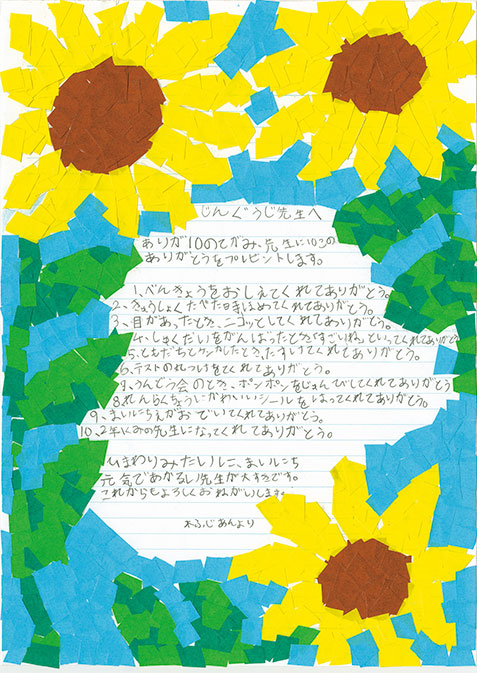 じんぐうじ先生へ
ありが10のてがみ、先生に10この
ありがとうをプレゼントします。
1、べんきょうをおしえてくれてありがとう。
2、きゅうしょくたべた時ほめてくれてありがとう。
3、目があったとき、ニコッとしてくれてありがとう。
4、しゅくだいをがんばったとき「すごいね」といってくれてありがとう
5、ともだちとケンカしたとき、たすけてくれてありがとう。
6、テストの丸つけをしてくれてありがとう。
7、うんどう会のとき、ポンポンをじゅんびしてくれてありがとう
8、れんらくちょうにかわいいシールをはってくれてありがとう。
9、まいにちえがおでいてくれてありがとう。
10、2年1くみの先生になってくれてありがとう。
ひまわりみたいに、まいにち
元気であかるい先生が大すきです。
これからもよろしくおねがいします。
あんより